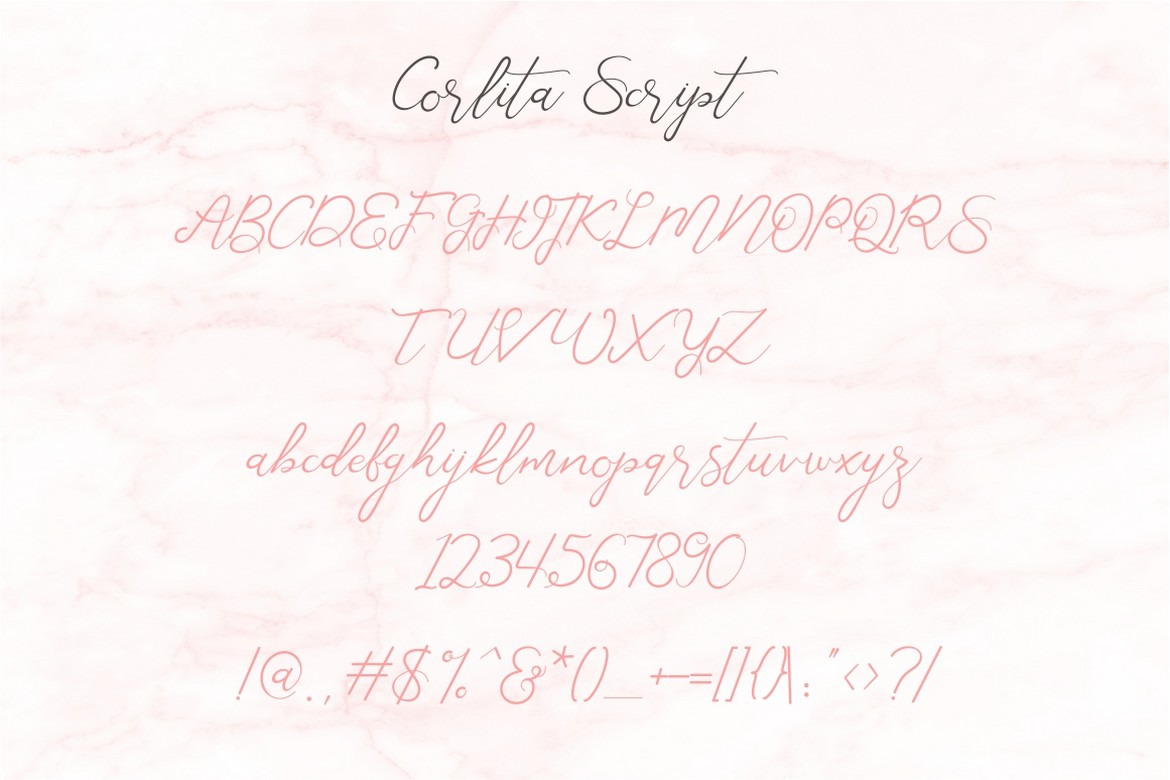 Corlita Script
ABCDEFGHIJKLMNOPQRS
TUVWXYZ
abcdefghijklmnopqrstuvwxyz
1234567890
!@.,#$%^&*()_+-=[]{}|:"<>?/